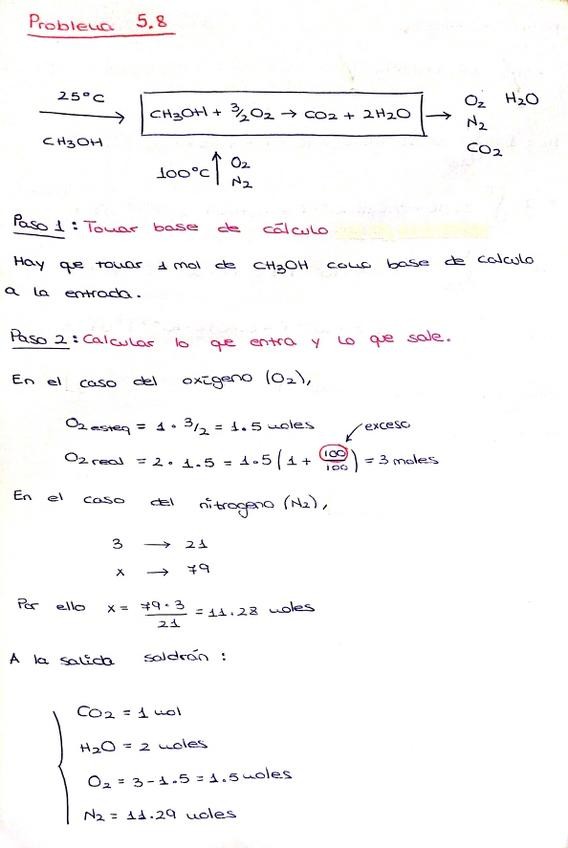 Problema 5.8
25°C
CH3OH + 3/2 O2 → CO2 + 2H2O
O2 H2O
N2
CO2
CH3OH
100°C
O2
N2
Paso 1: Tomar base de cálculo
Hay que tomar 1 mol de CH3OH como base de calculo
a la entrada.
Paso 2: Calcular lo que entra y lo que sale.
En el caso del oxígeno (O2),
O2 esteq = 1 · 3/2 = 1.5 moles
exceso
O2 real = 2 · 1.5 = 1.5 (1 + 100/100) = 3 moles
En el caso del nitrogeno (N2),
3 → 21
x → 79
Por ello x = 79·3/21 = 11.28 moles
A la salida saldrán:
CO2 = 1 mol
H2O = 2 moles
O2 = 3 - 1.5 = 1.5 moles
N2 = 11.29 moles